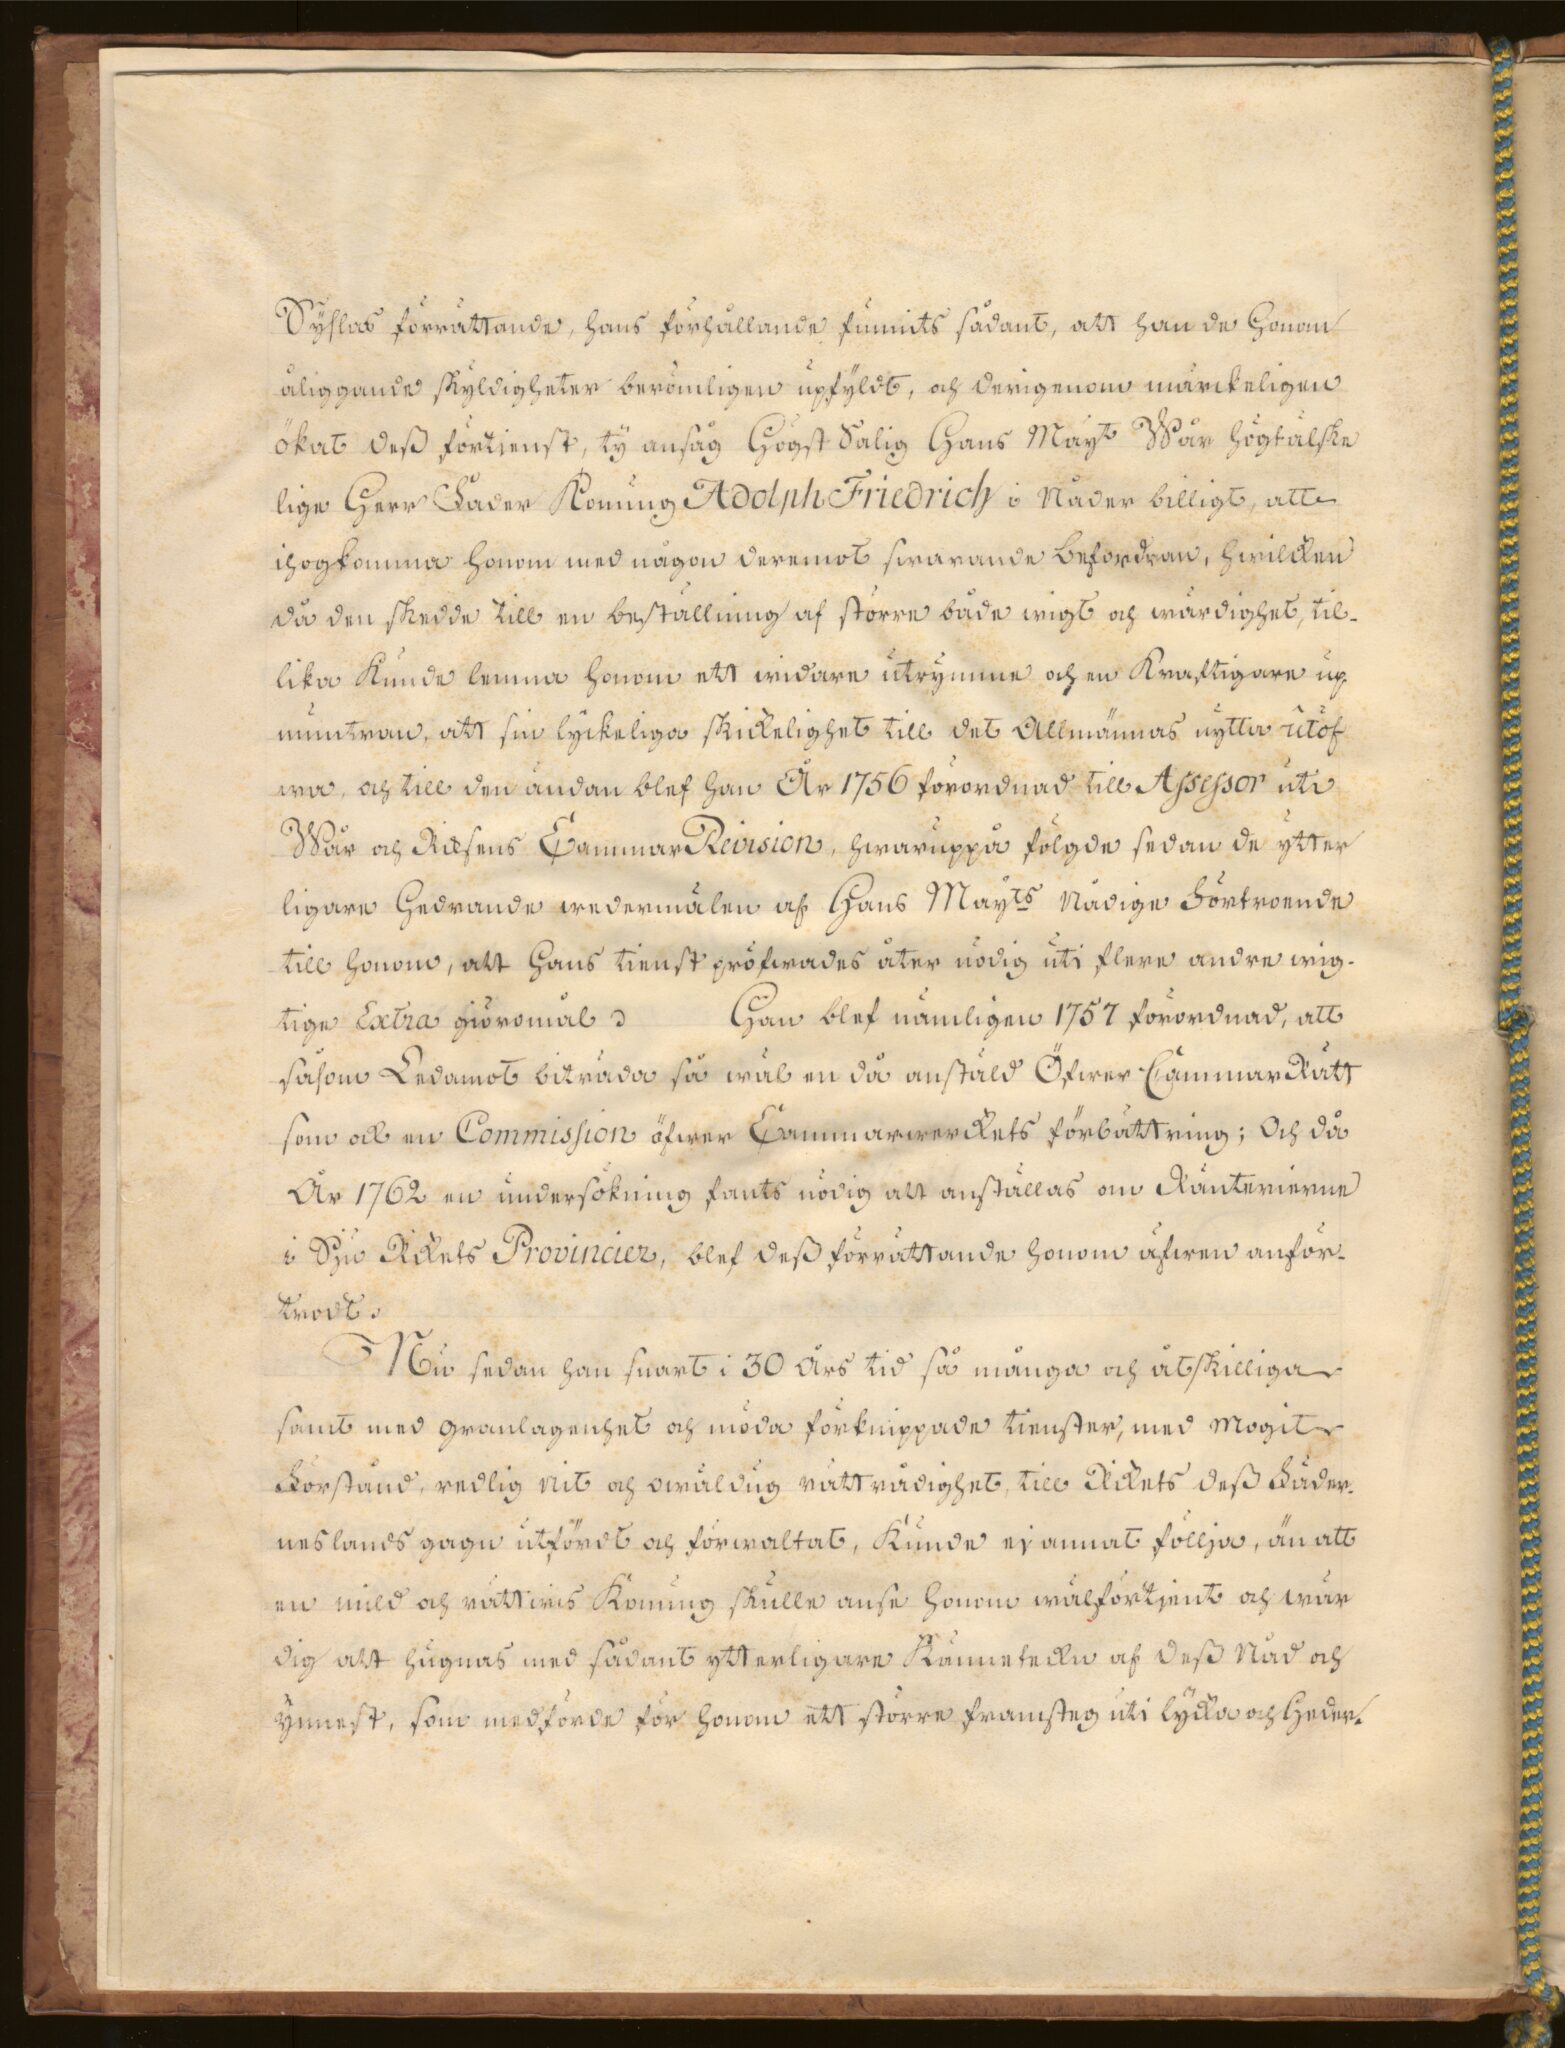 Sysslas förrättande, hans förhållande funnits sådant, att han de Honom
åliggande skyldigheter berömligen upfyldt, och derigenom märckeligen
ökat deß förtienst, ty ansåg Högst Salig Hans Mayt Wår högtälske
lige Herr Fader Konung Adolph Friedrich i Nåder billigt, att
ihogkomma honom med någon deremot swarande befordran, hwilcken
då den skedde till en beställning af större både wigt och wärdighet, til-
lika kunde lemna honom ett widare utrymme och en kraftigare up
muntran, att sin lyckeliga skickelighet till det Allmännas nytta utöf
wa, och till den ändan blef han År 1756 förordnad till Assessor uti
Wår och Ricksens Cammar Revision, hwaruppå fölgde sedan de ytter
ligare Hedrande wedermälen af Hans Mayts Nådige Förtroende
till honom, att Hans tienst pröfwades åter nödig uti flere andre wig-
tige Extra giöromål. Han blef nämligen 1757 förordnad, att
såsom Ledamot biträda så wäl en då anstäld Öfwer Cammar Rätt
som ock en Commission öfwer Cammarwerckets förbättring; Och då
År 1762 en undersökning fants nödig att anställas om Ränterierne
i Sju Rickets Provincier, blef deß förrättande honom äfwen anför-
trodt.
Nu sedan han snart i 30 Års tid så många och åtskilliga
samt med granlagenhet och möda förknippade tienster, med Mogit
Förstånd, redlig nit och owäldug rättrådighet, till Rickets deß Fäder-
neslands gagn utfördt och förwaltat, Kunde ej annat föllja, än att
en mild och rättwis Konung skulle anse honom wälförtjent och wär
dig att hugnas med sådant ytterligare Känneteckn af Deß Nåd och
ynnest, som medförde för honom ett större framsteg uti lycka och Heder.